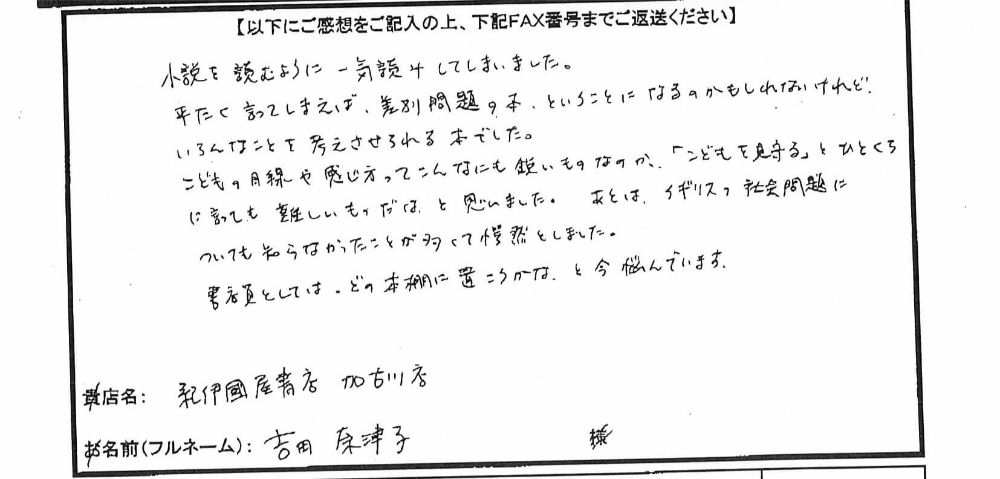 【以下にご感想をご記入の上、下記FAX番号までご返送ください】
小説を読むように一気読みしてしまいました。
平たく言ってしまえば、差別問題の本、ということになるのかもしれないけれど、
いろんなことを考えさせられる本でした。
こどもの目線や感じ方ってこんなにも鋭いものなのか、「こどもを見守る」とひとくち
に言っても難しいものだな、と思いました。 あとは、イギリスの社会問題に
ついても知らなかったことが多くて愕然としました。
書店員としては、どの本棚に置こうかな、と今悩んでいます。
貴店名： 紀伊國屋書店 加古川店
お名前（フルネーム）： 吉田 奈津子 様